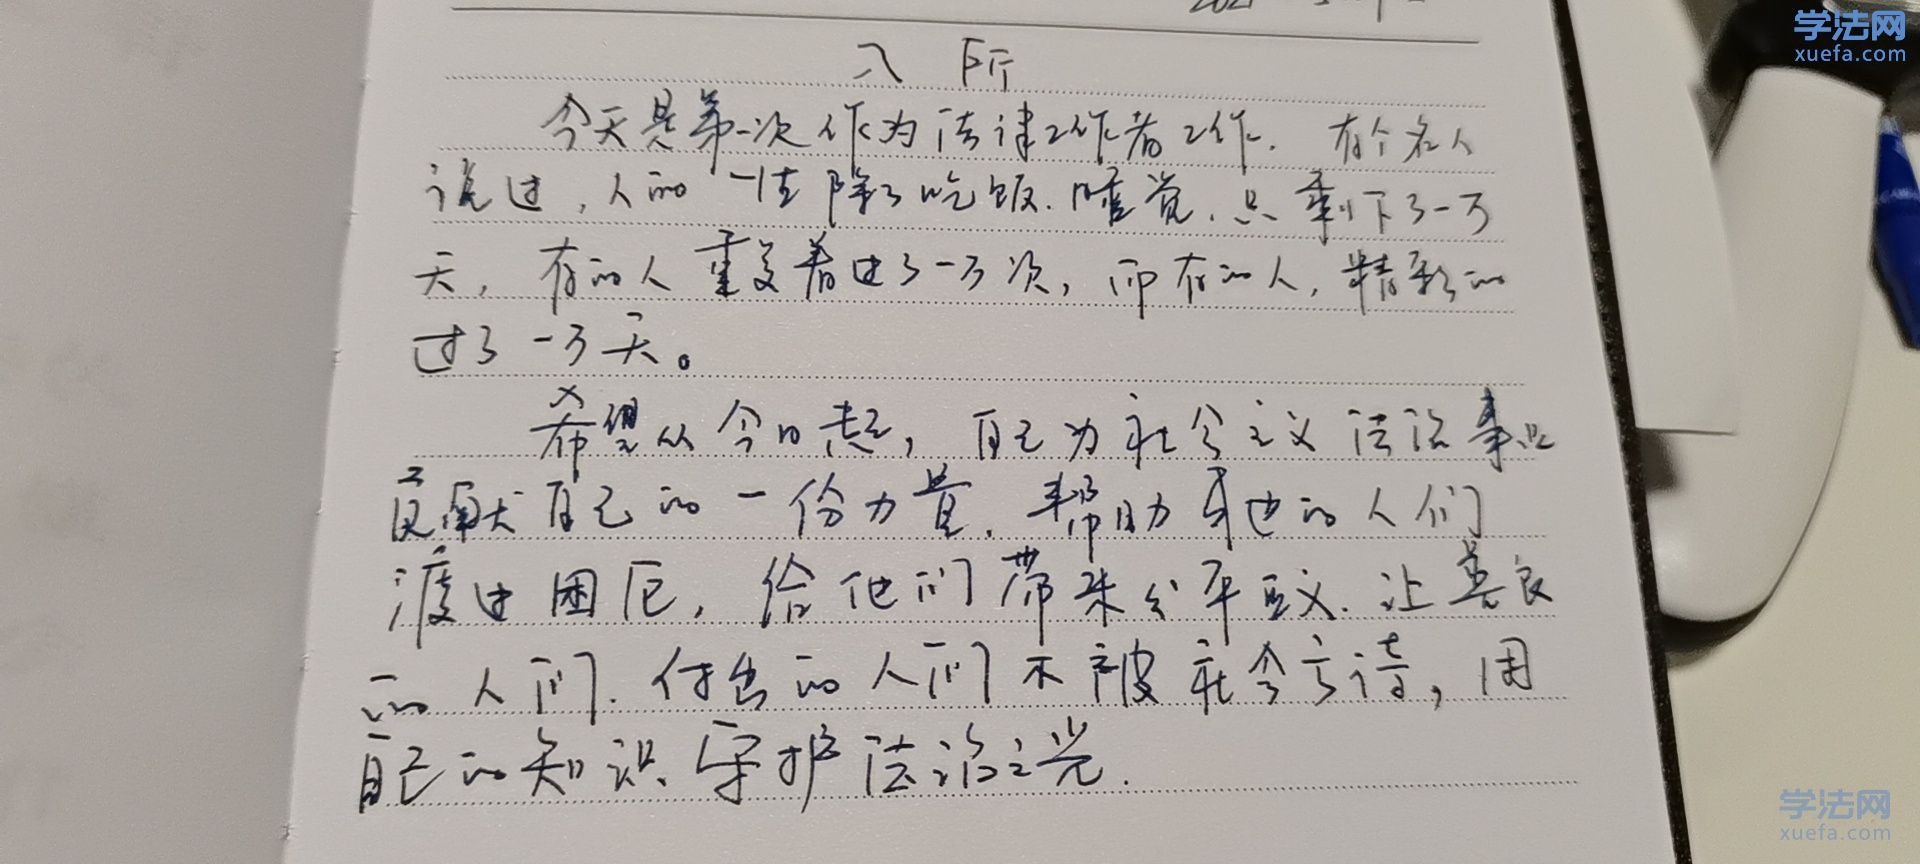 学法网
xuefa.com
入所
今天是第一次作为法律工作者工作. 有个名人
说过,人的一生除了吃饭.睡觉.只剩下了一万
天,有的人重复着过了一万次,而有的人,精彩的
过了一万天。
希望从今日起,自己为社会主义法治事业
贡献自己的一份力量.帮助身边的人们
渡过困厄,给他们带来公平正义.让善良
的人们.付出的人们不被社会亏待,用
自己的知识、守护法治之光.
学法网
xuefa.com